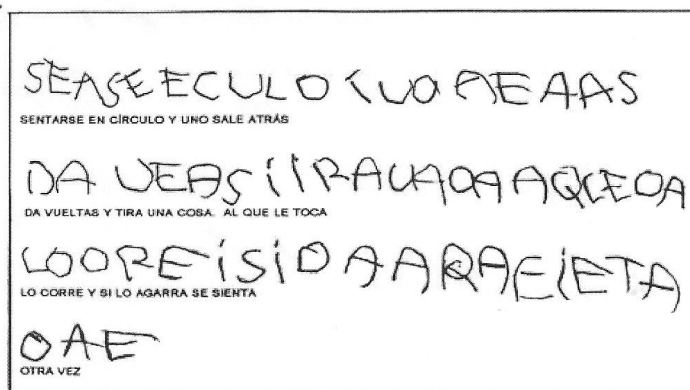 SEASEECULO iUO AEAAS
SENTARSE EN CÍRCULO Y UNO SALE ATRÁS
DA UEAS iiRAUAOA AQLEOA
DA VUELTAS Y TIRA UNA COSA. AL QUE LE TOCA
LOORE iSiO AARAEiETA
LO CORRE Y SI LO AGARRA SE SIENTA
OAE
OTRA VEZ